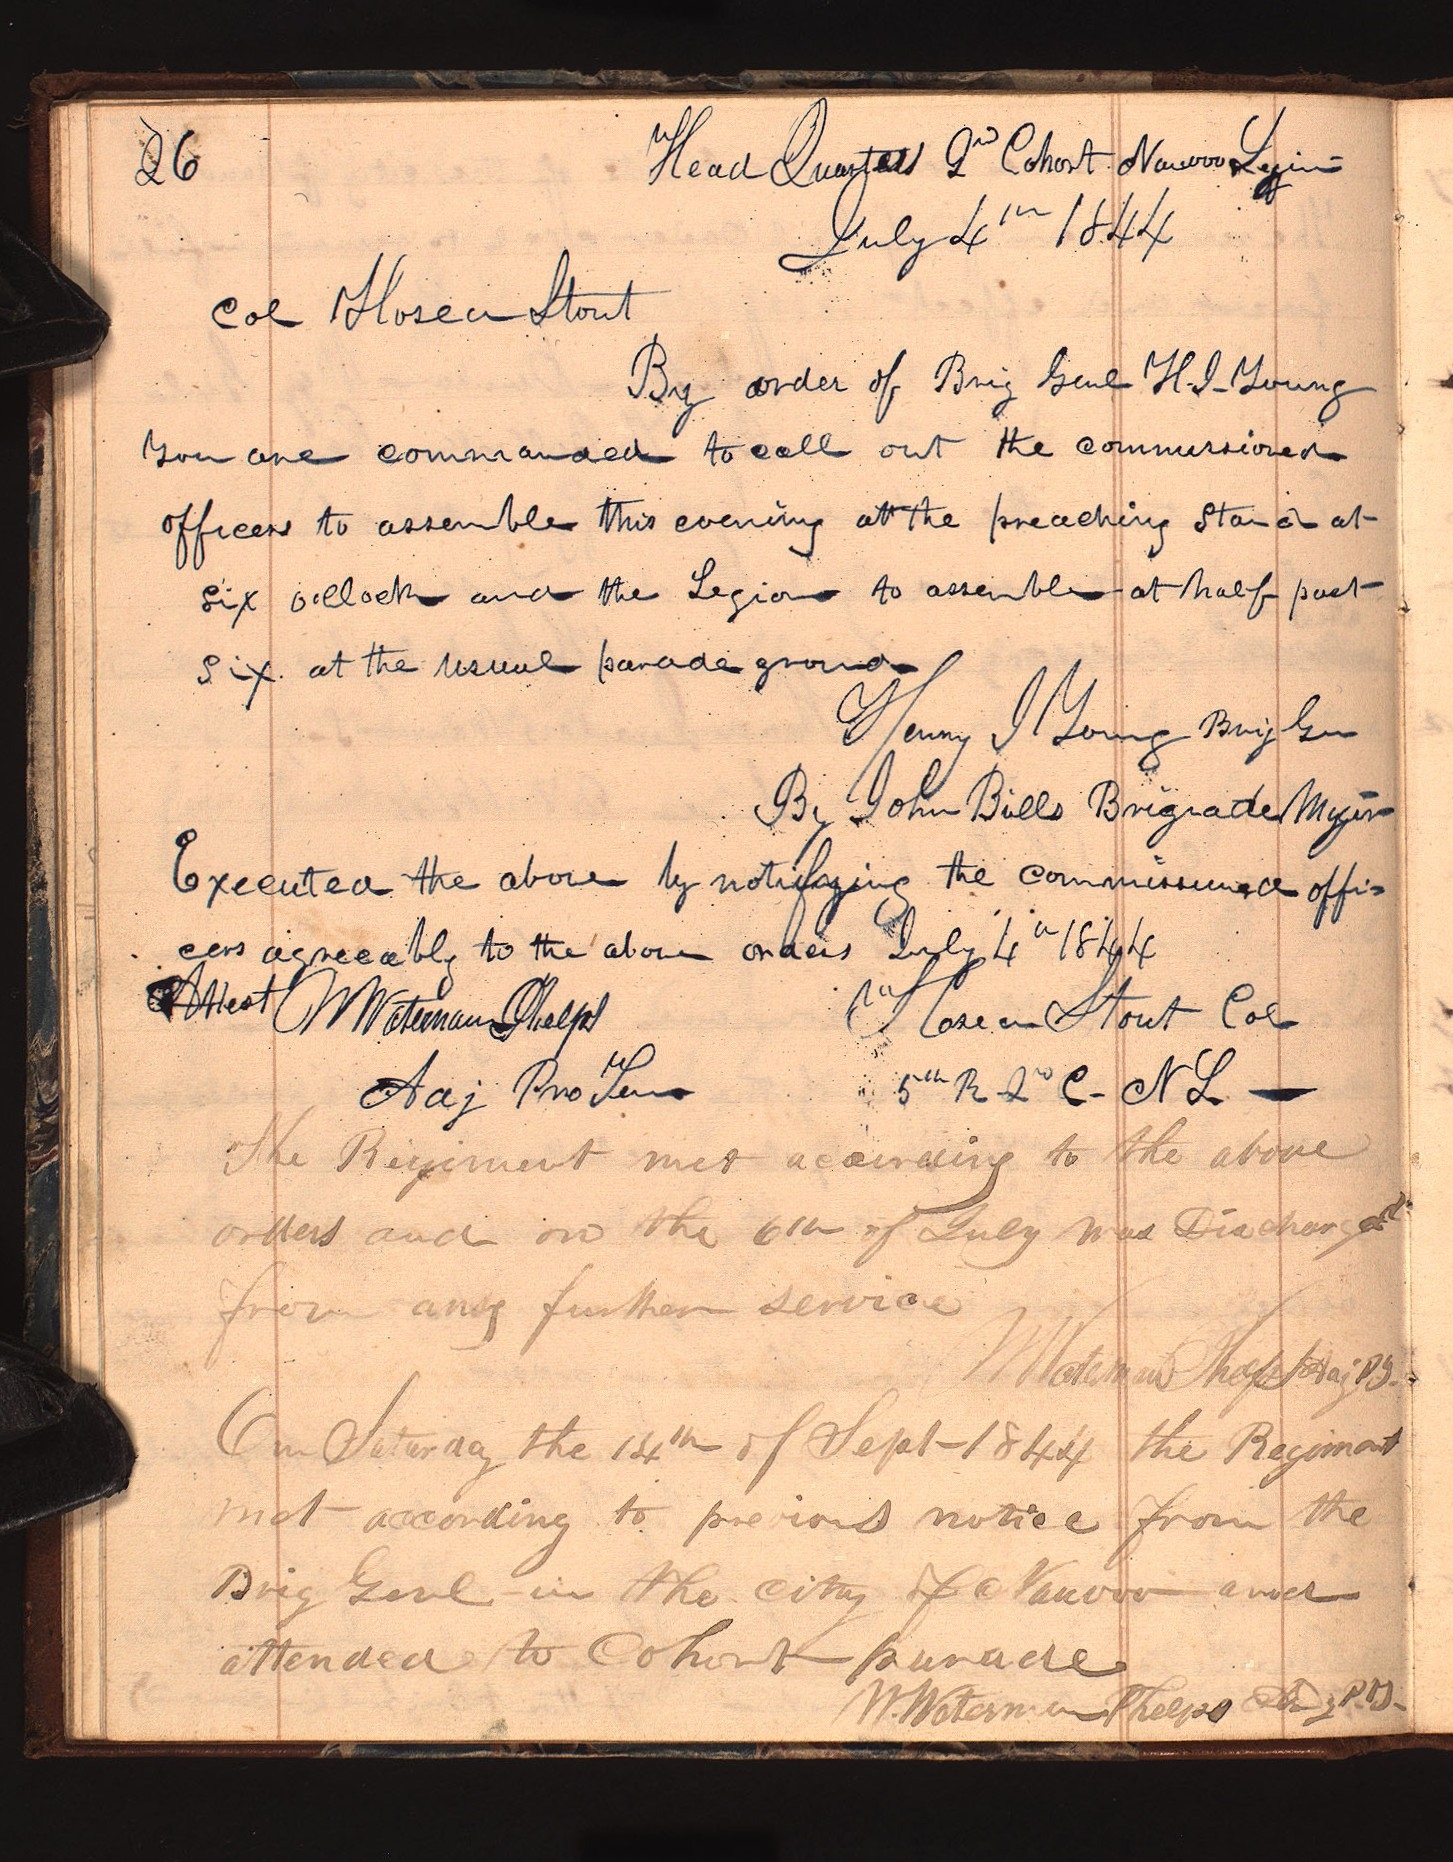 26
Head Quarters 2nd Cohort Nauvoo Legion
July 4th 1844
Col Hosea Stout
By order of Brig Genl H. I. Young
you are commanded to call out the commissioned
officers to assemble this evening at the preaching Stand at
six oclock and the Legion to assemble at half past
six. at the usual parade ground
Henry I Young Brig Gen
By John Bills Brigade Major
Executed the above by notifying the commissioned offi=
cers agreeably to the above orders July 4th 1844
Attest W Waterman Phelps
Hosea Stout Col
Adj Pro Tem
5th R 2nd C- N L —
The Regiment met according to the above
orders and on the 6th of July was Discharged
from any further service
W Waterman Phelps Adj P T-
On Saturday the 14th of Sept- 1844 the Regiment
met according to previous notice from the
Brig Genl in the city of Nauvoo and
attended to Cohort parade
W. Waterman Phelps Adj P. T-